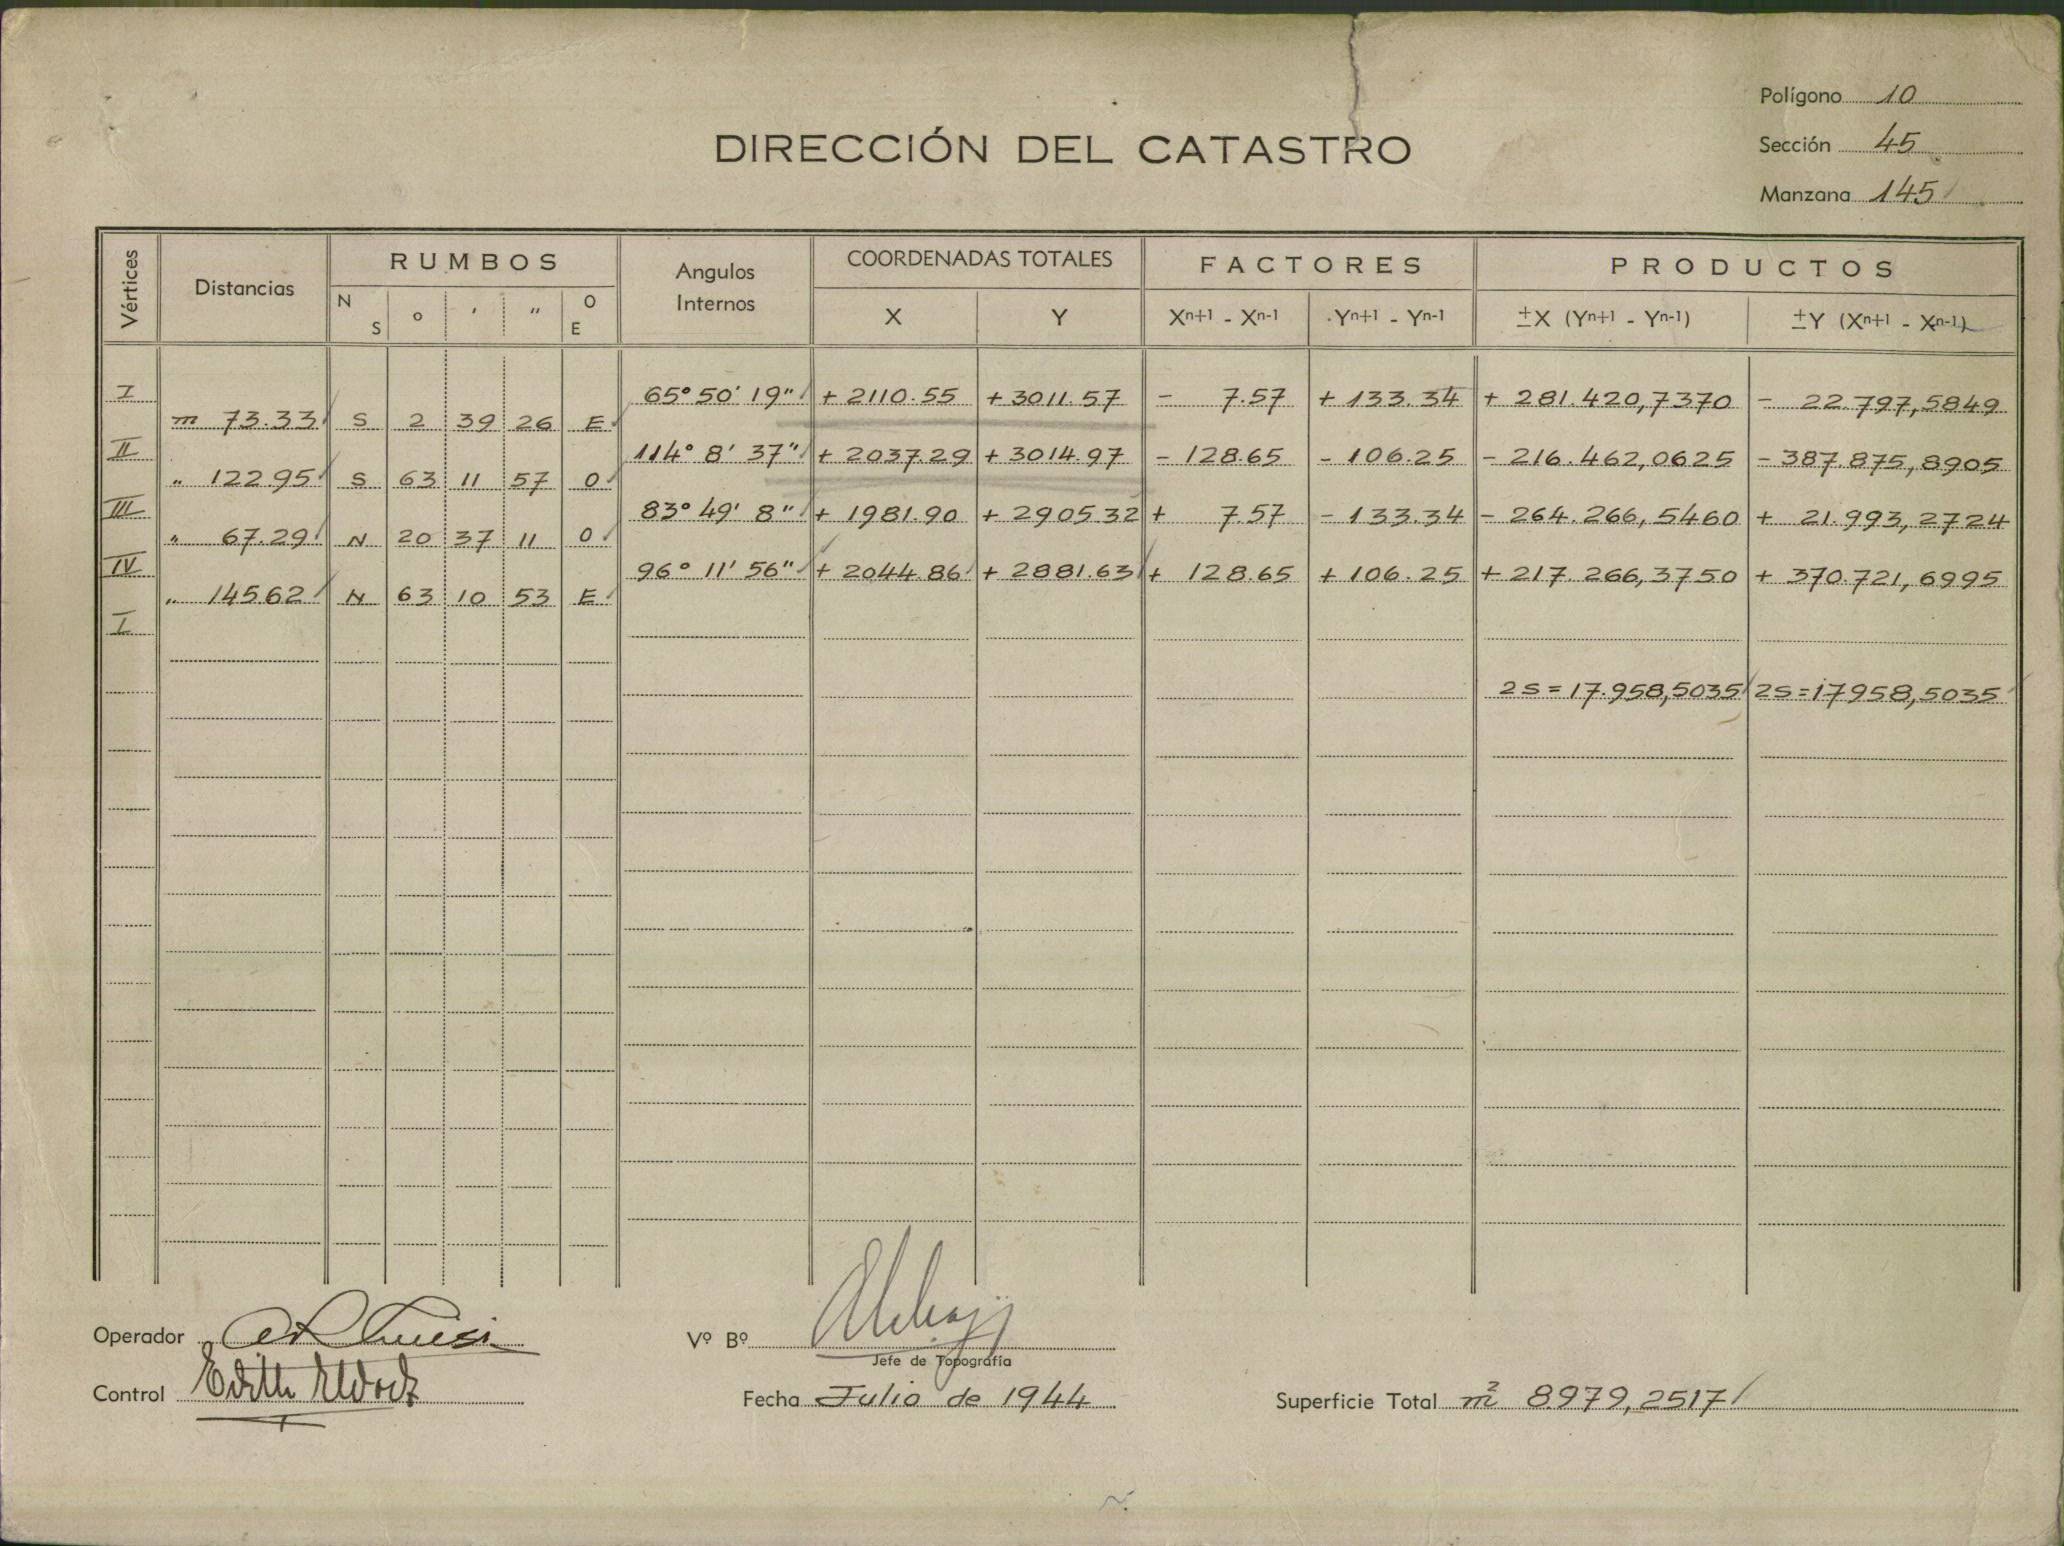 Polígono 10
DIRECCIÓN DEL CATASTRO
Sección 45
Manzana 145
Vértices Distancias RUMBOS Angulos Internos COORDENADAS TOTALES FACTORES PRODUCTOS
N S ° ′ ″ O E X Y Xn+1 - Xn-1 Yn+1 - Yn-1 ±X (Yn+1 - Yn-1) ±Y (Xn+1 - Xn-1)
I 65° 50' 19" + 2110.55 + 3011.57 - 7.57 + 133.34 + 281.420,7370 - 22.797,5849
m 73.33 S 2 39 26 E
II 114° 8' 37" + 2037.29 + 3014.97 - 128.65 - 106.25 - 216.462,0625 - 387.875,8905
" 122.95 S 63 11 57 O
III 83° 49' 8" + 1981.90 + 2905.32 + 7.57 - 133.34 - 264.266,5460 + 21.993,2724
" 67.29 N 20 37 11 O
IV 96° 11' 56" + 2044.86 + 2881.63 + 128.65 + 106.25 + 217.266,3750 + 370.721,6995
" 145.62 N 63 10 53 E
I
2S = 17.958,5035 2S = 17958,5035
Operador
Vº Bº
Jefe de Topografía
Control Edith
Fecha Julio de 1944
Superficie Total m² 8.979,2517